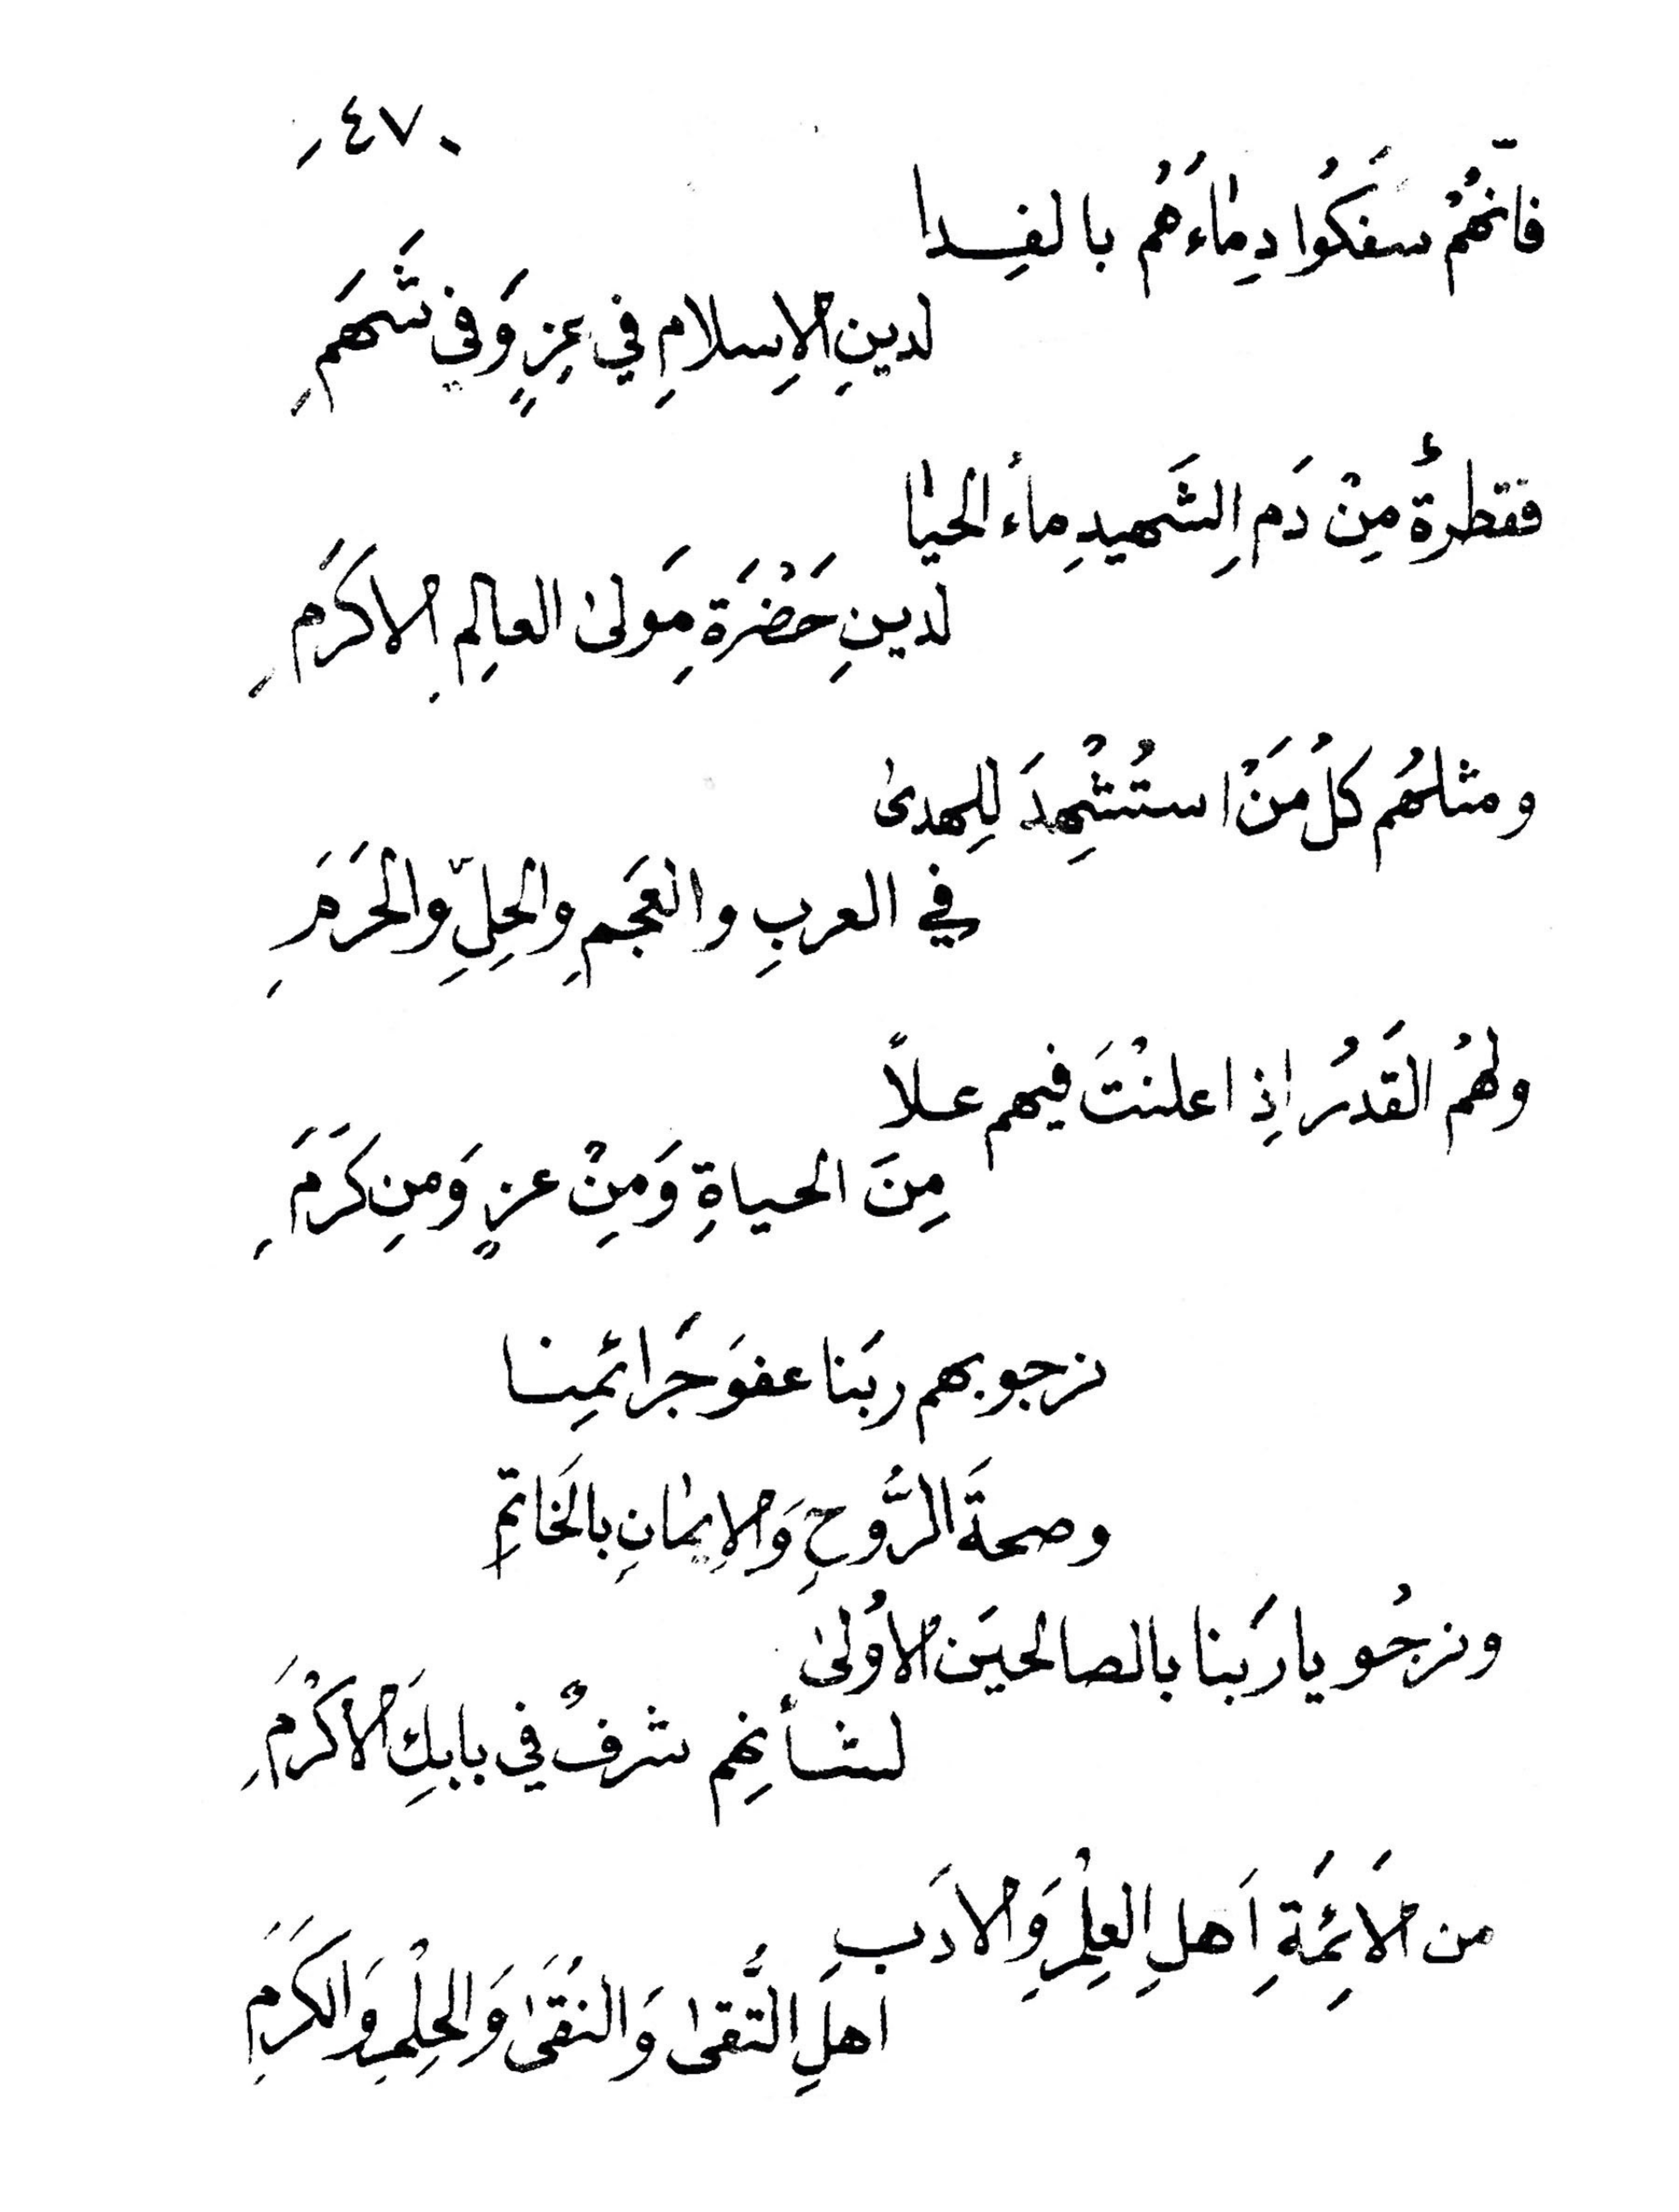 -٤٧-
فانّهُمْ سَفَكُوا دِمٰاءَهُم بالفِدا
لدينِ الإِسلامِ في عِزٍ وَفي شَهَمِ
فقطرةٌ مِنْ دَمِ الشَهيدِ مأءُ الحيٰا
لدينِ حَضْرَةِ مَولىٰ العالِمِ الاكرَمِ
ومثلهُم كلُ مَنْ استُشْهِدَ لِلهدىٰ
في العربِ والعَجَمِ والحِلِّ والحَرَمِ
ولهُمُ القَدرُ اذِ اعلنْتَ فيهم علاً
مِنَ الحياةِ وَمِنْ عزٍ وَمنِ كَرَمِ
نرجو بهم ربَنا عفوَ جَرائمِنا
وصحةَ الرُّوحِ وَالاِيمٰانِ بالخَاتمِ
ونرجُو يا ربَنا بالصالحيَن الاوُلىٰ
لشأنهِم شرفٌ في بابِكَ الاكْرَمِ
من الاَئِمَةِ اَهلِ العِلْمِ وَالادَبِ
اهلِ التُّقىٰ وَالنقَىٰ وَالحِلْمِ وَالكَرَمِ